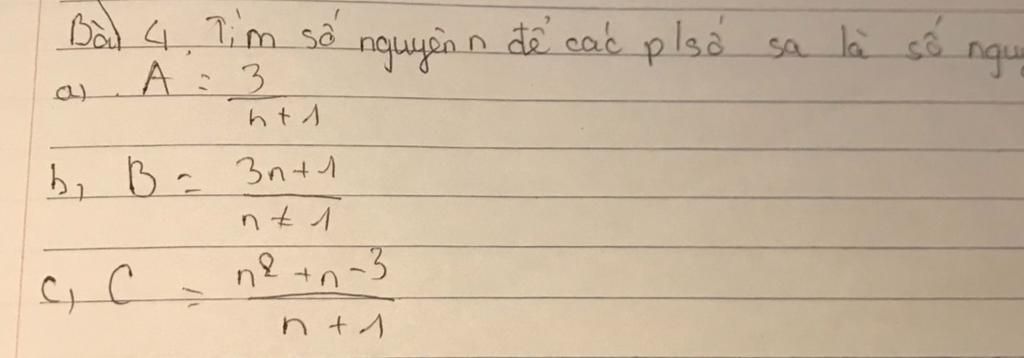 Bài 4. Tìm số nguyên n để các p/số sa là số nguy
a) . A = 3/(n+1)
b, B = (3n+1)/(n+1)
c, C = (n²+n-3)/(n+1)